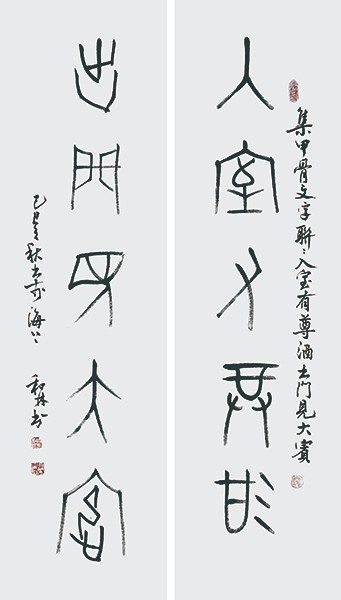 集甲骨文字聯：入室有尊酒出門見大賓
入室又尊酒
出門見大賓
秋書於海上